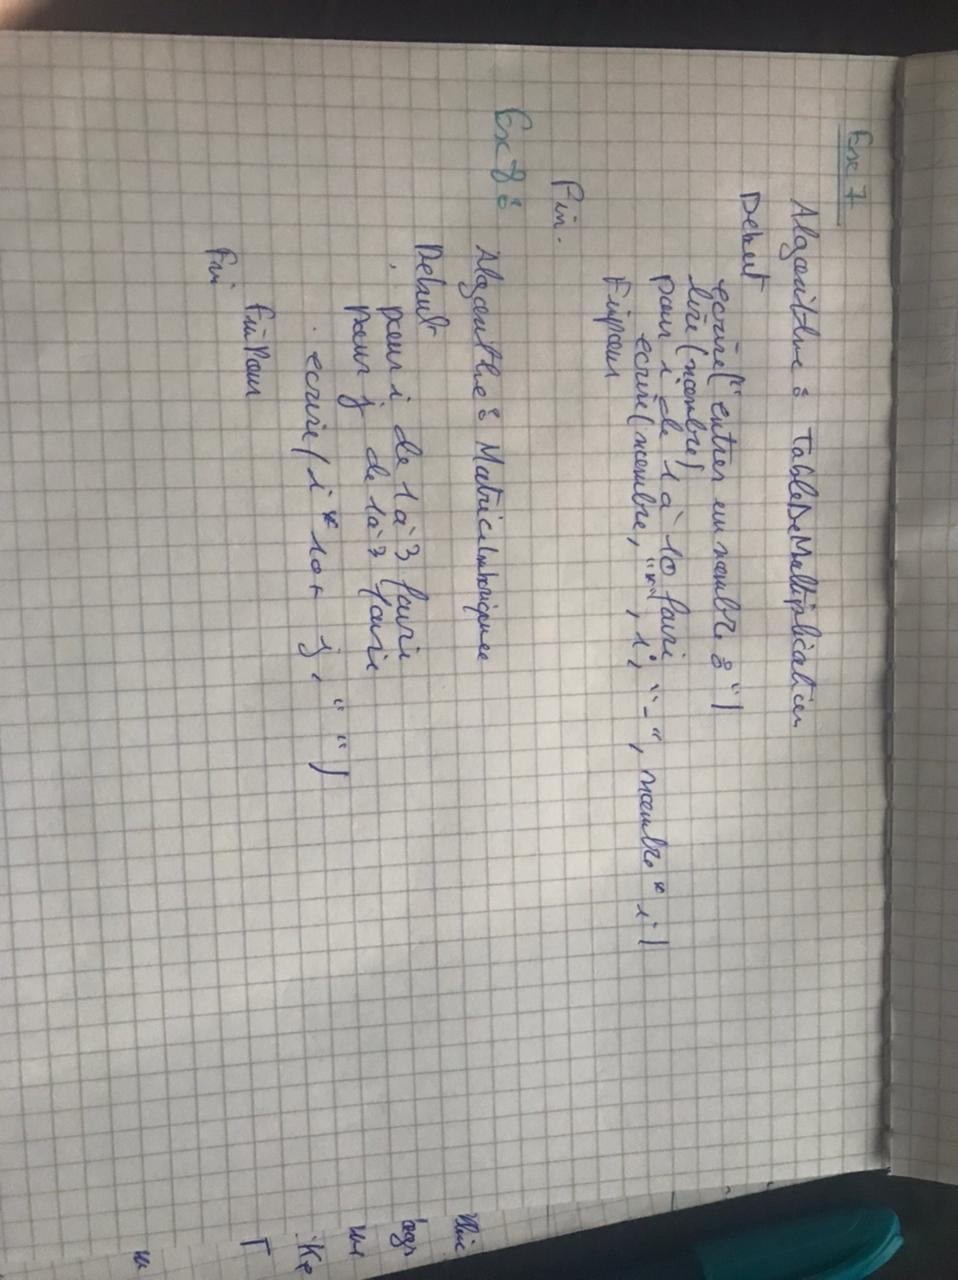 Exe 7
Algorithme : TableDeMultiplication
Debut
ecrire(" entrer un nombre : ")
lire(nombre)
pour i de 1 à 10 faire
ecrire(nombre, "*", i, "-", nombre * i)
Finpour
Fin.
Ex 8 :
Algorithe : MatriceImbriquee
Debut
pour i de 1 à 3 faire
pour j de 1 à 3 faire
ecrire( i * 10 + j, " ")
FinPour
Fin